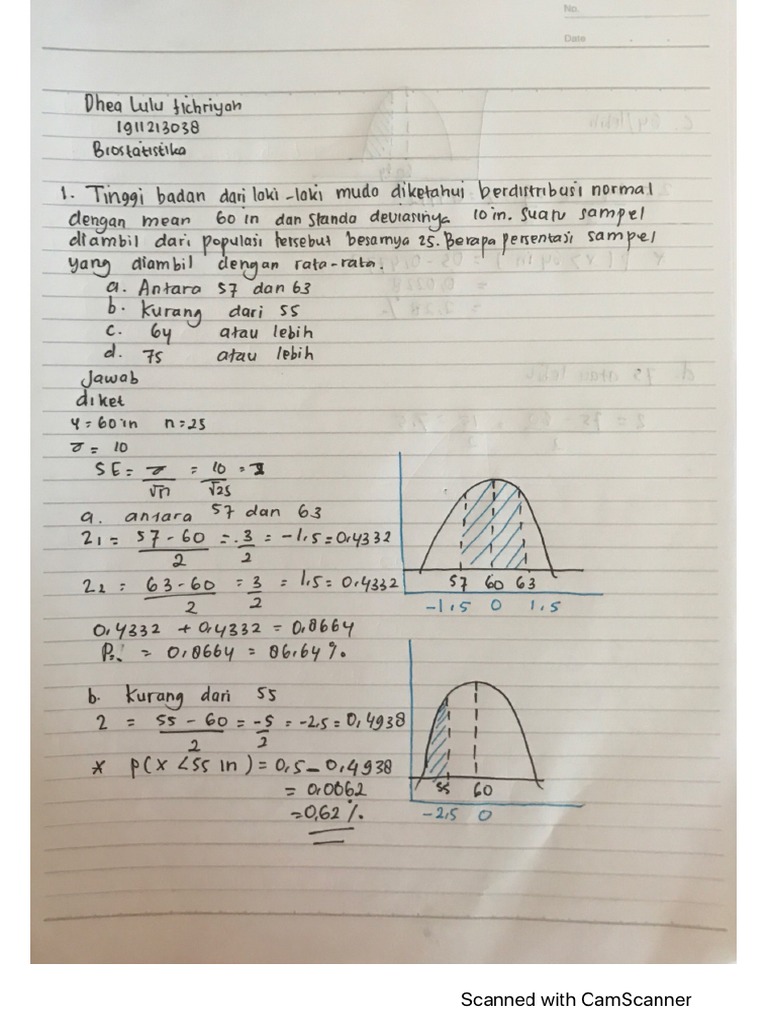 No.
Date
Dhea Lulu fichriyah
1911213038
Biostatistika
1. Tinggi badan dari laki-laki muda diketahui berdistribusi normal
dengan mean 60 in dan standa deviasinya 10 in. Suatu sampel
diambil dari populasi tersebut besarnya 25. Berapa persentasi sampel
yang diambil dengan rata-rata.
a. Antara 57 dan 63
b. Kurang dari 55
c. 64 atau lebih
d. 75 atau lebih
Jawab
diket
4 = 60 in n = 25
σ = 10
SE = σ/√n = 10/√25 =
a. antara 57 dan 63
Z1 = 57-60/2 = -3/2 = -1,5 = 0,4332
Z2 = 63-60/2 = 3/2 = 1,5 = 0,4332
57 60 63
-1,5 0 1,5
0,4332 + 0,4332 = 0,8664
= 0,8664 = 86,64%.
b. Kurang dari 55
Z = 55-60/2 = -5/2 = -2,5 = 0,4938
* P(X <55 in) = 0,5 - 0,4938
= 0,0062
= 0,62%.
55 60
-2,5 0
Scanned with CamScanner